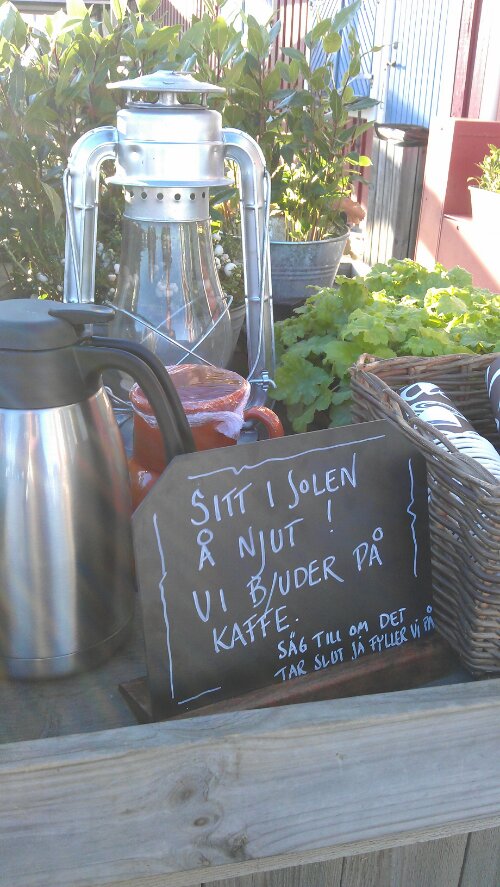 SITT I SOLEN
Å NJUT !
VI BJUDER PÅ
KAFFE.
SÄG TILL OM DET
TAR SLUT SÅ FYLLER VI PÅ